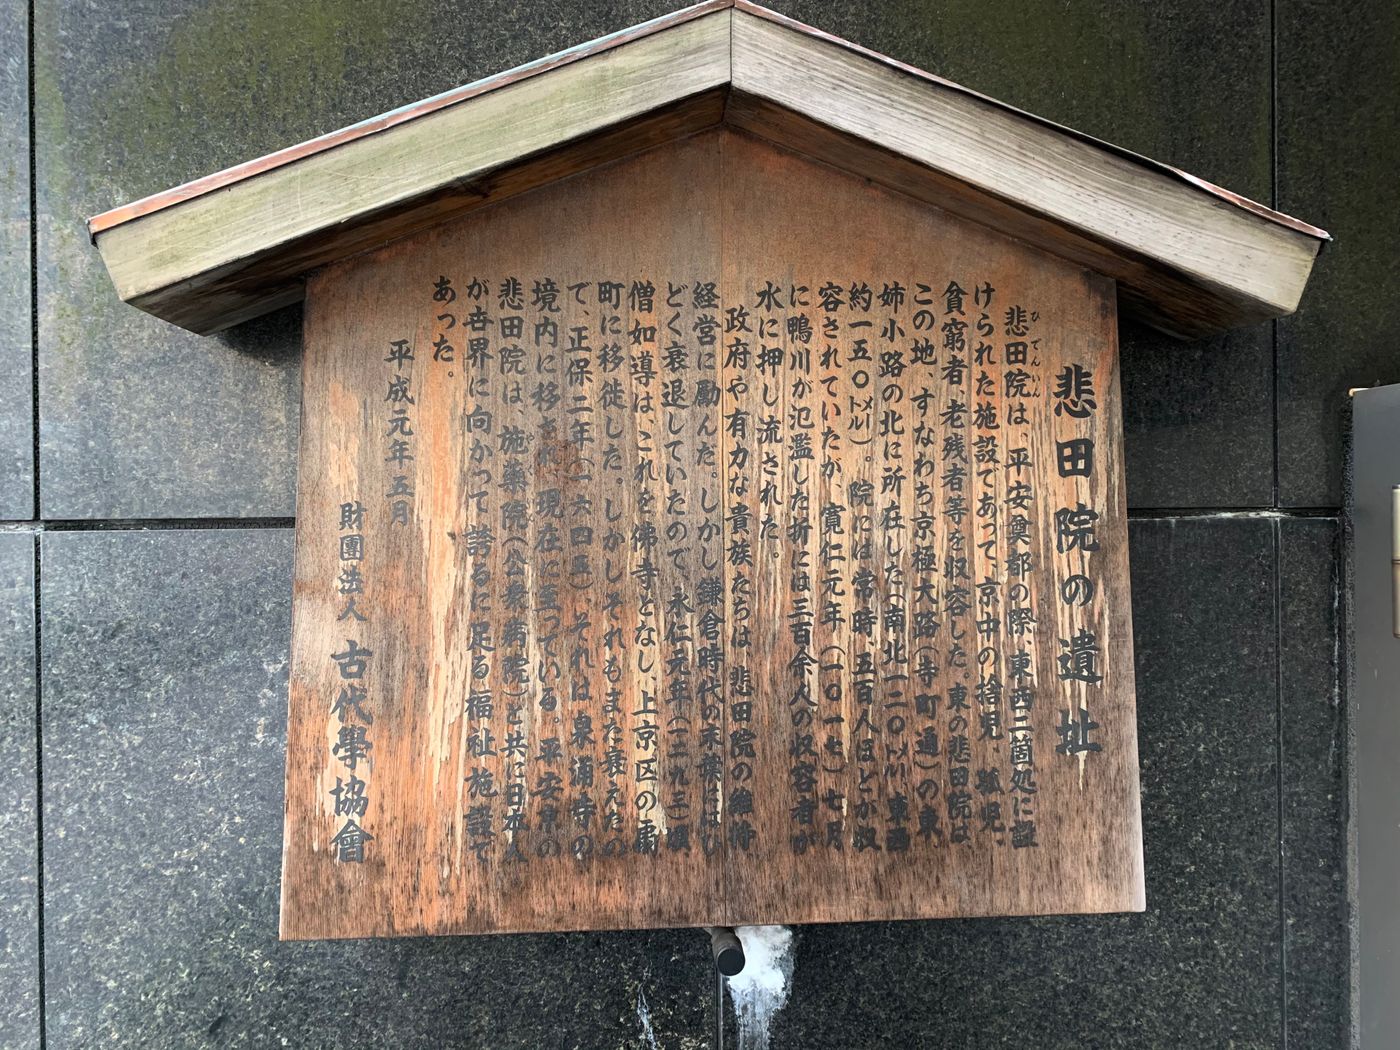 悲田院の遺址
悲田院は、平安奠都の際、東西二箇処に設
ひでんいん
けられた施設であって、京中の捨児、孤児、
貧窮者、老残者等を収容した。東の悲田院は、
この地、すなわち京極大路(寺町通)の東、
姉小路の北に所在した(南北一二〇㍍、東西
約一五〇㍍)。院には常時、五百人ほどが収
容されていたが、寛仁元年(一〇一七)七月
に鴨川が氾濫した折には三百余人の収容者が
水に押し流された。
政府や有力な貴族たちは、悲田院の維持、
経営に勵んだ。しかし鎌倉時代の末葉にはひ
どく衰退していたので、永仁元年(一二九三)頃
僧如導は、これを佛寺となし、上京区の扇
町に移徙した。しかしそれもまた衰えたの
で、正保二年(一六四五)、それは泉涌寺の
境内に移され、現在に至っている。平安京の
悲田院は、施薬院(公衆病院)と共に日本人
が世界に向かって誇るに足る福祉施設で
あった。
平成元年五月
財團法人 古代學協會